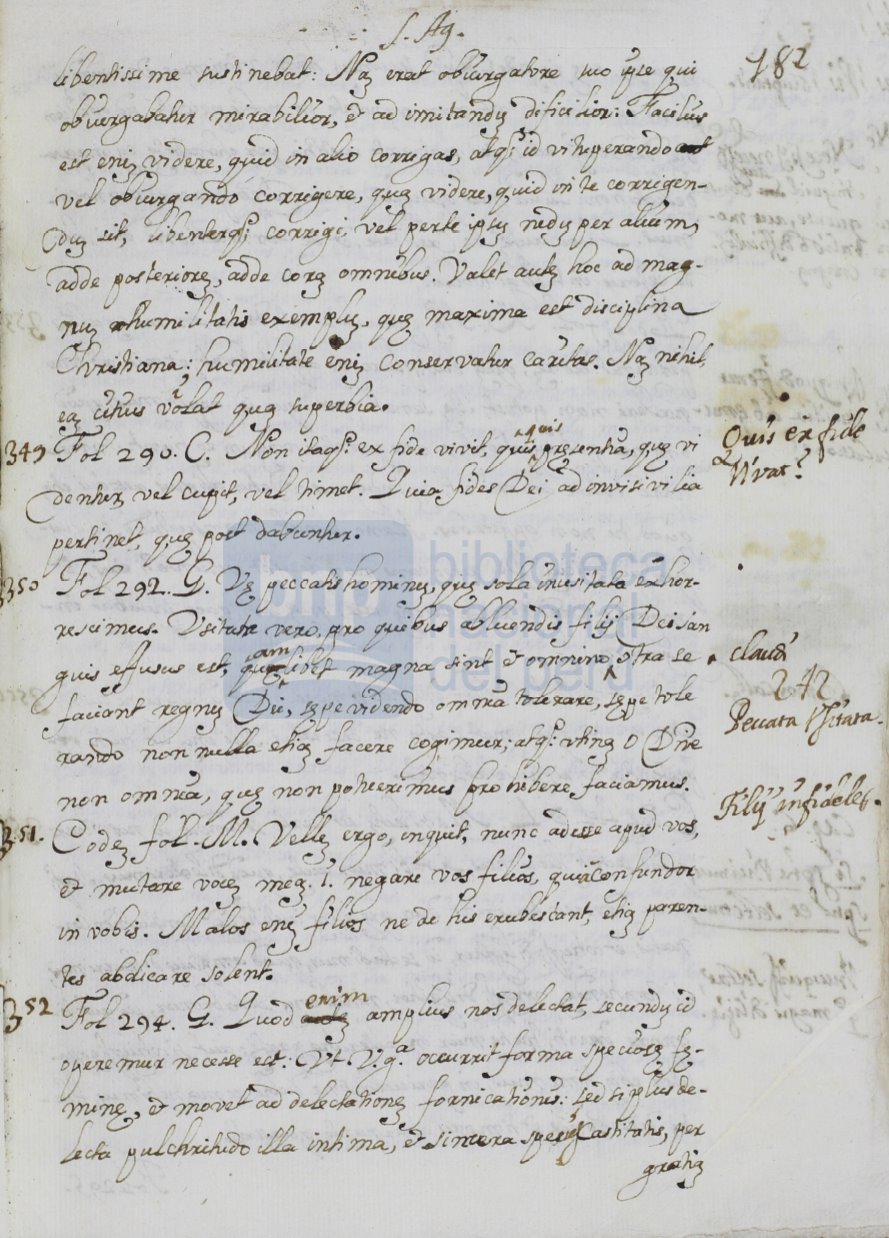 S. Ag.
182
libentissime sustinebat: Naȝ erat obiurgatore suo ipse qui
obiurgabatur mirabilior, et ad imitandȝ dificilior: Facilius
est eniȝ videre, quid in alio corrigas, atq; id vituperando
vel obiurgando corrigere, quȝ videre, quid in te corrigen-
dȝ sit, libenterq; corrigi vel per te ipsȝ nedȝ per alium,
adde posterioreȝ, adde corȝ omnibus. Valet auteȝ hoc ad mag-
nȝ humilitatis exemplȝ, quȝ maxima est disciplina
Christiana; humilitate eniȝ conservatur caritas. Naȝ nihil
eȝ citius violat quȝ superbia.
349 Fol 290. C. Non itaq; ex fide vivit, quis presentia, quȝ vi
dentur, vel cupit, vel timet. Quia fides Dei ad invisivilia
pertinet, quȝ post dabuntur.
Quis ex fide
Vivat?
350 Fol 292. G. Vȝ peccatis hominȝ, quȝ sola inusitata exhor-
rescimus. Usitata vero, pro quibus abluendis filij Dei san
guis effusus est, quamlibet magna sint et omnino ctra se
claudi
faciant regnȝ Dei, sȝpe videndo omnia tolerare, sȝpe tole
242
Peccata Usitata.
rando non nulla etiȝ facere cogimur; atq; utinȝ o Dne
non omnia, quȝ non potuerimus prohibere, faciamus.
Filij infideles.
351. Eodeȝ fol. M. Velleȝ ergo, inquit, nunc adesse apud vos,
et mutare voceȝ meȝ. i. negare vos filios, quia confundor
in vobis. Malos eniȝ filios ne de his erubescant, etiȝ paren-
tes abdicare solent.
352 Fol 294. G. Quod enim amplius nos delectat, secundȝ id
operemur necesse est: Vt. V.gª. occurrit forma speciosȝ fȝ-
minȝ, et movet ad delectationeȝ fornicationis: sed si plus de-
lecta pulchritudo illa intima, et sincera species Castitatis, per
gratiȝ